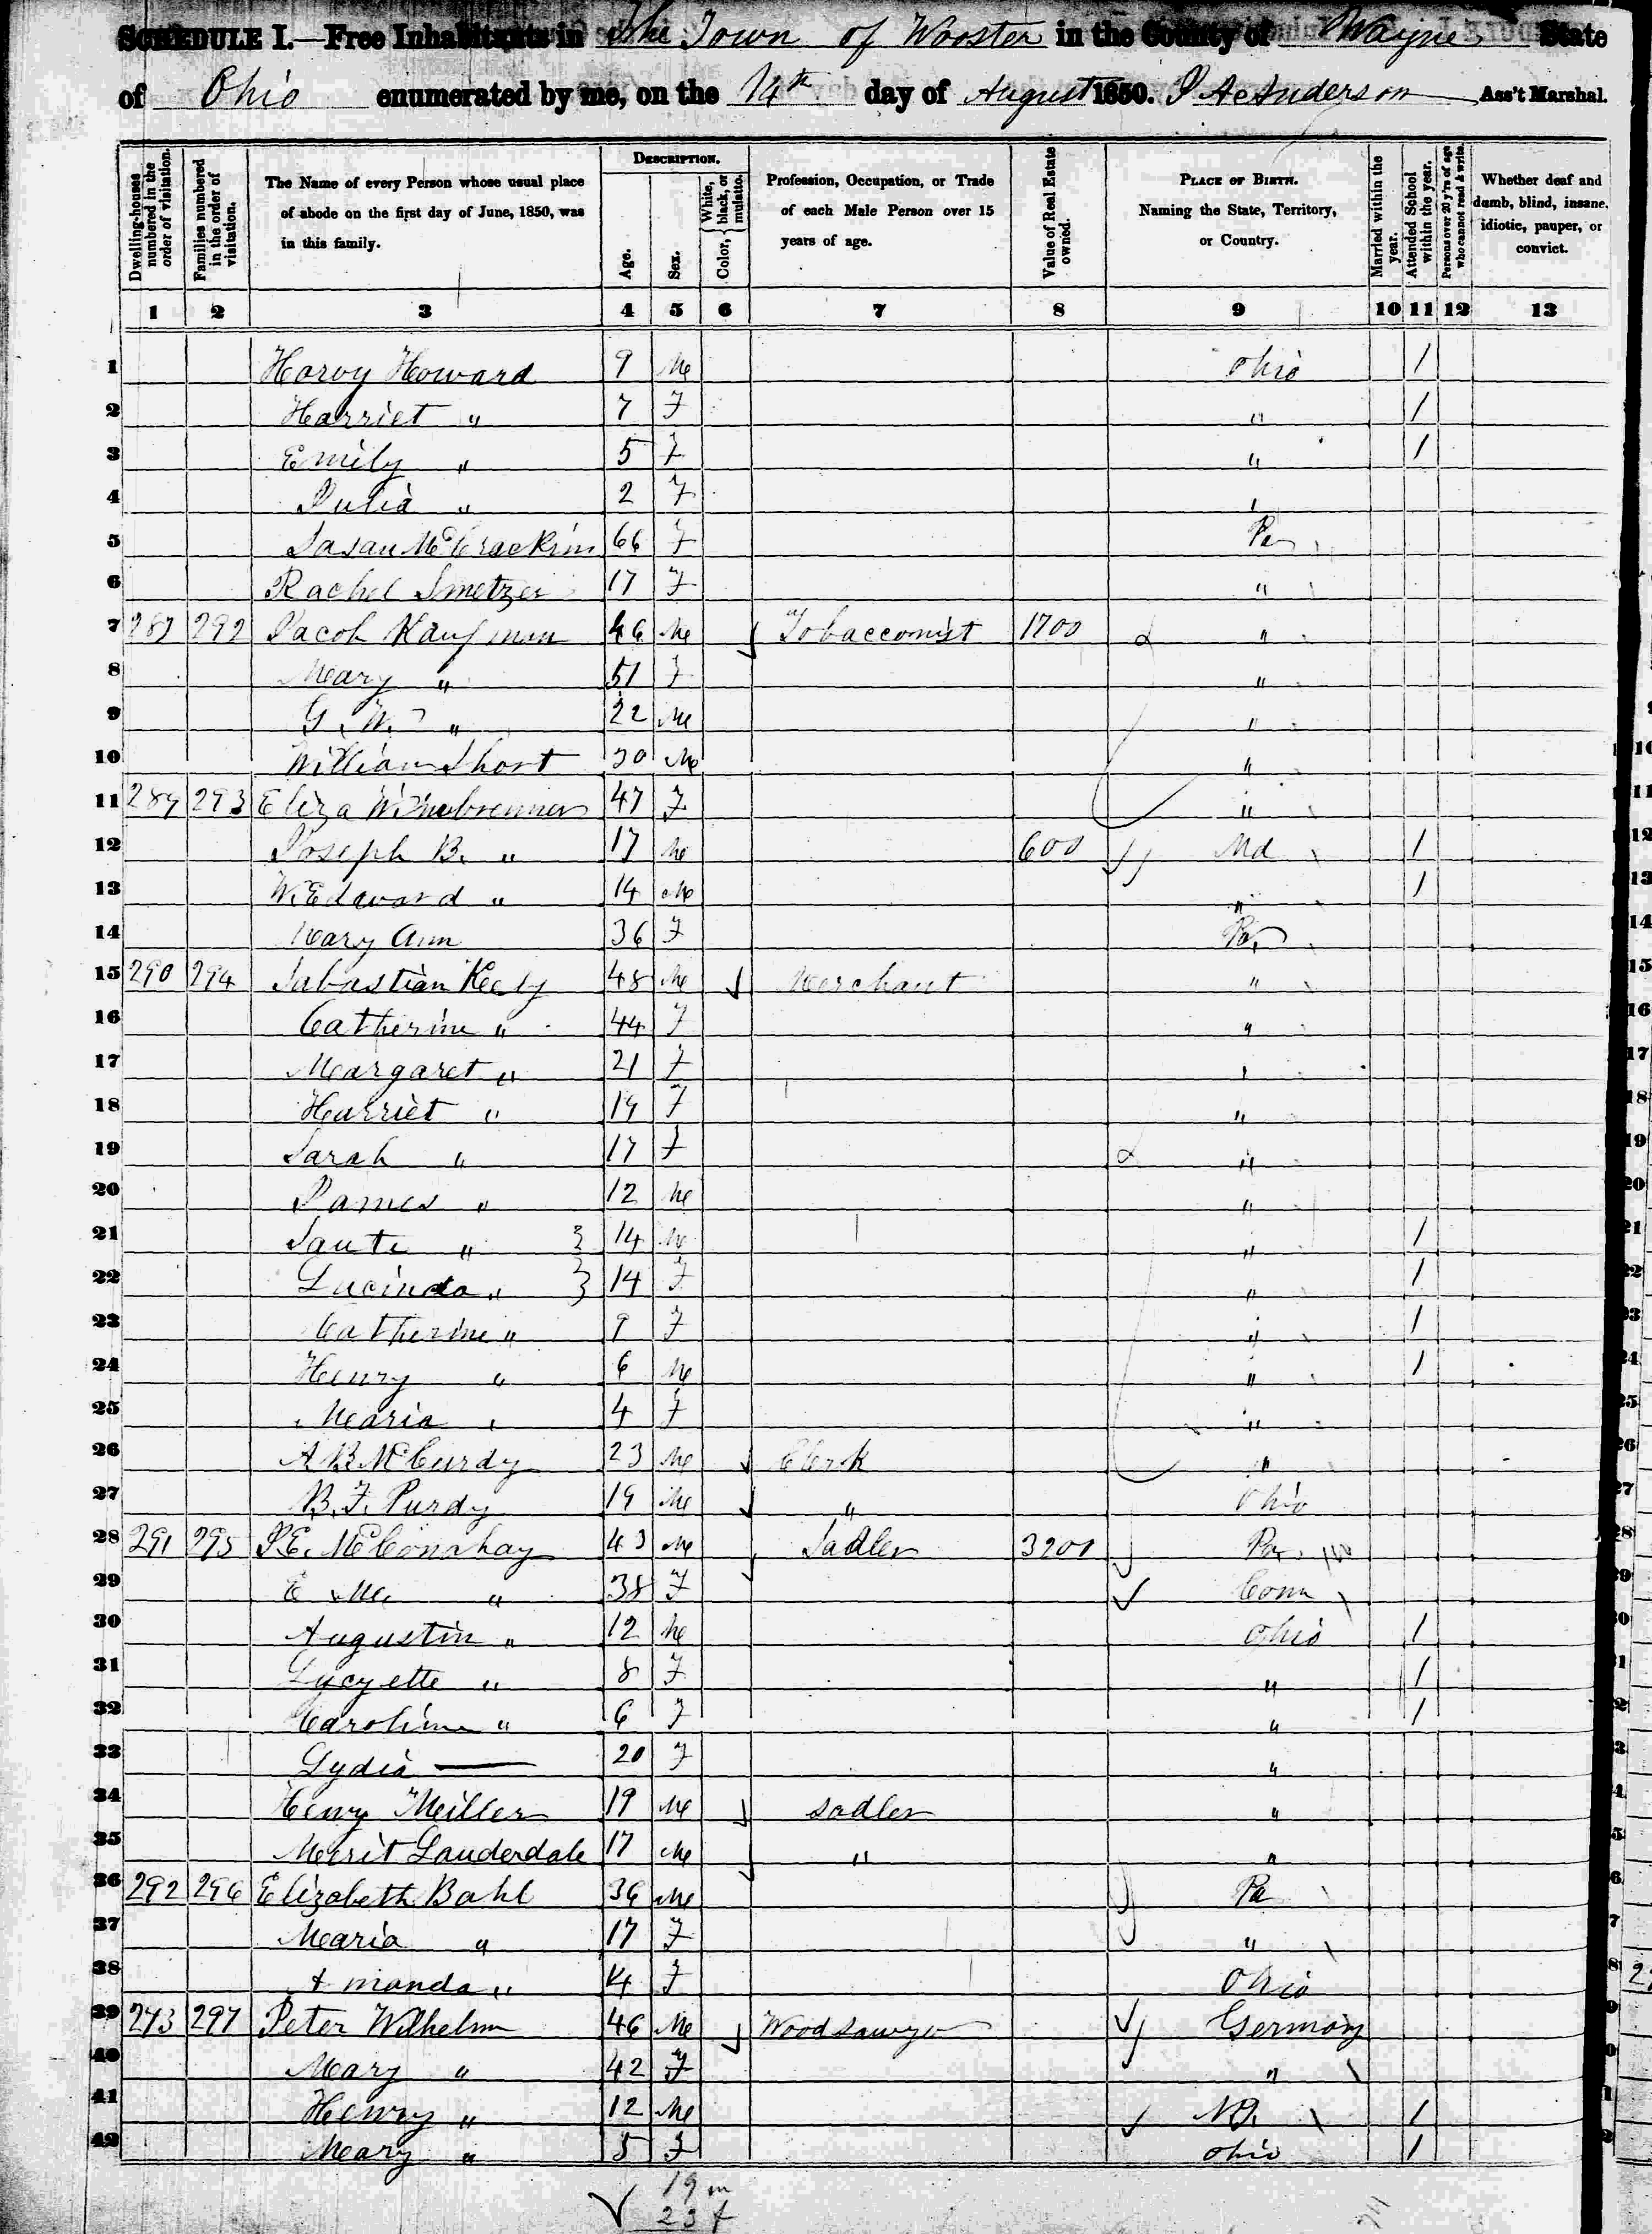 SCHEDULE I.—Free Inhabitants in The Town of Wooster in the County of Wayne State
of Ohio enumerated by me, on the 14th day of August 1850. Ass't Marshal.
Dwelling-houses numbered in the order of visitation.
Families numbered in the order of visitation.
The Name of every Person whose usual place of abode on the first day of June, 1850, was in this family.
DESCRIPTION.
Age.
Sex.
Color, White, black, or mulatto.
Profession, Occupation, or Trade of each Male Person over 15 years of age.
Value of Real Estate owned.
PLACE OF BIRTH. Naming the State, Territory, or Country.
Married within the year.
Attended School within the year.
Persons over 20 y'rs of age who cannot read & write.
Whether deaf and dumb, blind, insane, idiotic, pauper, or convict.
1 2 3 4 5 6 7 8 9 10 11 12 13
1 Harvy Howard 9 M Ohio 1
2 Harriet " 7 F " 1
3 Emily " 5 F " 1
4 Julia " 2 F "
5 Susan McCrackin 66 F Pa
6 Rachel Smetzer 17 F "
7 287 292 Jacob Kaufman 46 M Tobacconist 1700 "
8 Mary " 51 F "
9 G. W. " 22 M "
10 William Short 30 M "
11 289 293 Eliza 47 F "
12 Joseph B. " 17 M 600 Md 1
13 W. Edward " 14 M " 1
14 Mary Ann 36 F Pa
15 290 294 Sabastian 48 M Merchant "
16 Catherine " 44 F "
17 Margaret " 21 F "
18 Harriet " 19 F "
19 Sarah " 17 F "
20 James " 12 M "
21 " 14 M " 1
22 Lucinda " 14 F " 1
23 Catherine " 9 F " 1
24 Henry " 6 M " 1
25 Maria " 4 F "
26 A B McCurdy 23 M Clerk "
27 B. F. Purdy 19 M " Ohio
28 291 295 J E. McConahay 43 M Sadler Pa
29 E Mc " 38 F Conn
30 Augustin " 12 M Ohio 1
31 Lucyette " 8 F " 1
32 Caroline " 6 F " 1
33 Lydia — 20 F "
34 Henry Miller 19 M Sadler "
35 Merit Lauderdale 17 M " "
36 292 296 Elizabeth Bahl 36 M Pa
37 Maria " 17 F "
38 Amanda " 14 F Ohio
39 293 297 Peter Wilhelm 46 M Wood Sawyer Germany
40 Mary " 42 F "
41 Henry " 12 M 1
42 Mary " 5 F Ohio 1
19 m
23 f